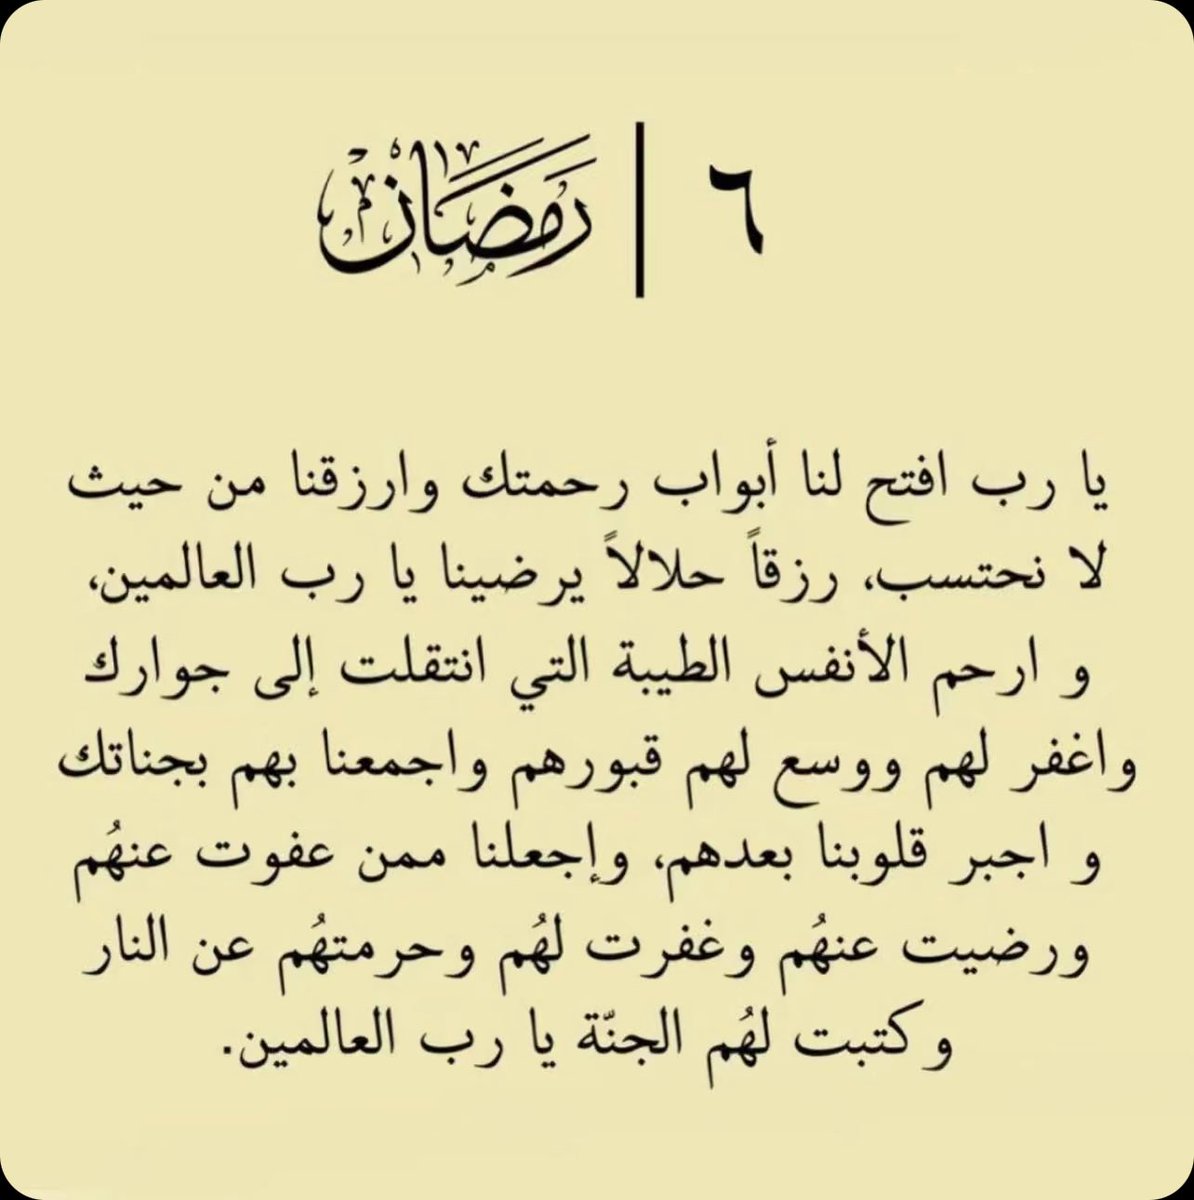 ٦ | رَمَضَان
يا رب افتح لنا أبواب رحمتك وارزقنا من حيث
لا نحتسب، رزقاً حلالاً يرضينا يا رب العالمين،
و ارحم الأنفس الطيبة التي انتقلت إلى جوارك
واغفر لهم ووسع لهم قبورهم واجمعنا بهم بجناتك
و اجبر قلوبنا بعدهم، وإجعلنا ممن عفوت عنهُم
ورضيت عنهُم وغفرت لهُم وحرمتهُم عن النار
وكتبت لهُم الجنّة يا رب العالمين.